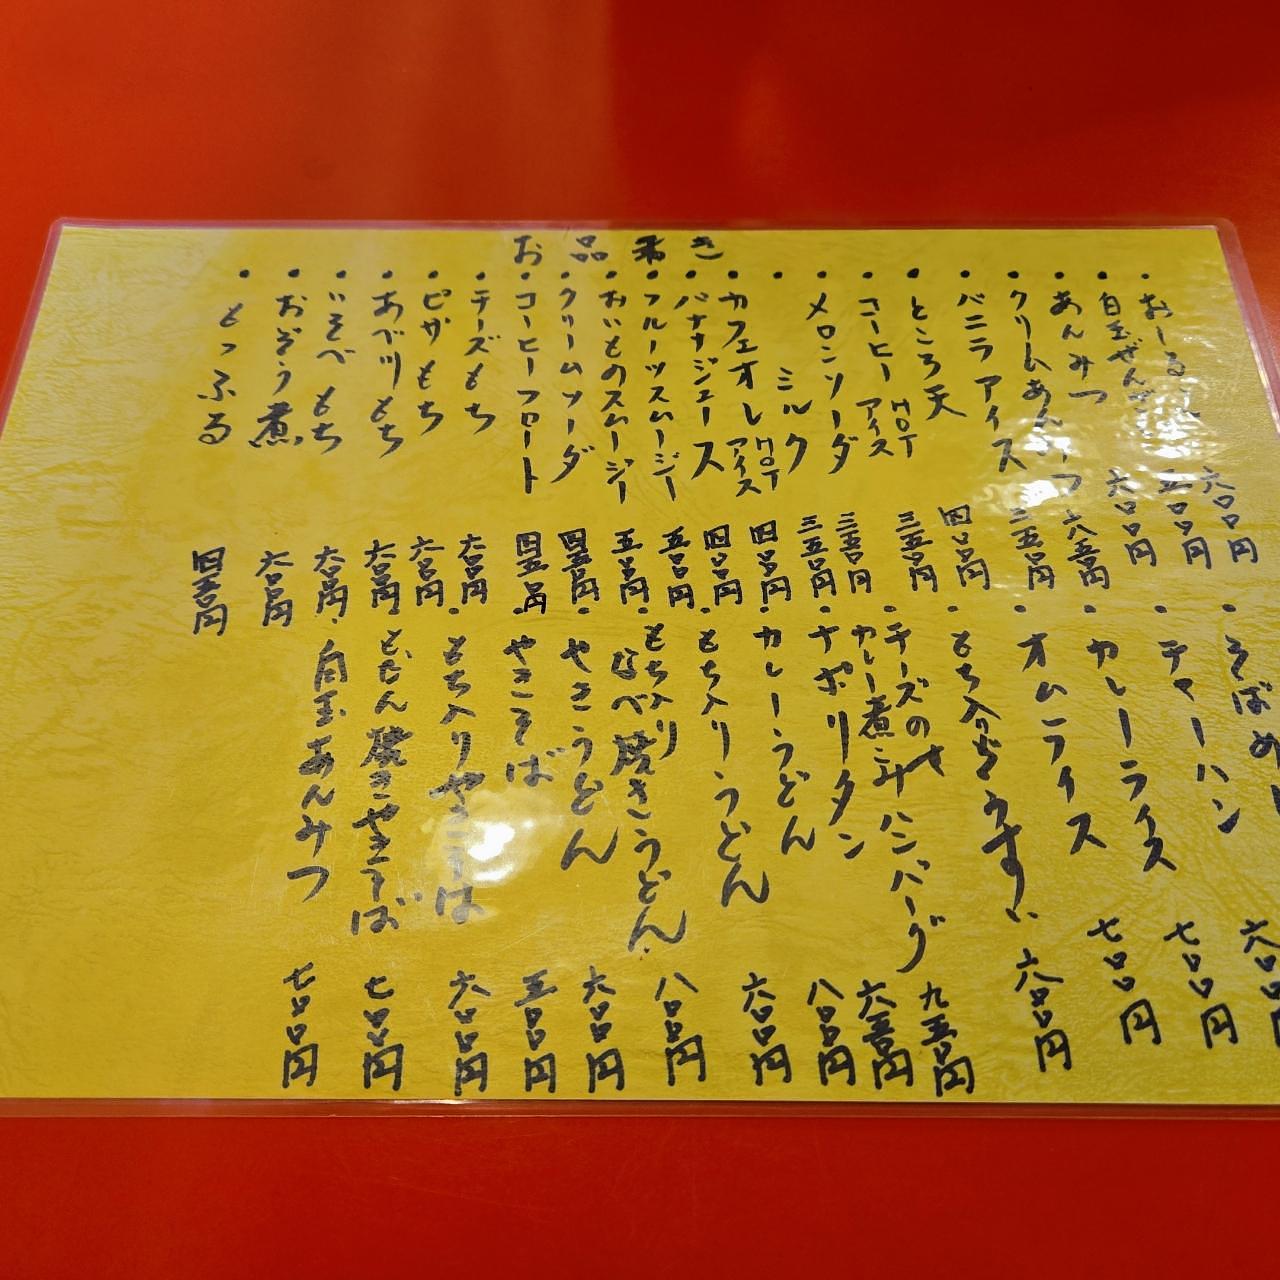 お品書き
・おーる
六〇〇円
・白玉ぜんざい
五〇〇円
・あんみつ
六〇〇円
・クリームあんみつ
六五〇円
・バニラアイス
三五〇円
・ところ天
四〇〇円
・コーヒー HOT アイス
三五〇円
・メロンソーダ
三五〇円
・ミルク
三五〇円
・カフェオレ HOT アイス
四〇〇円
・バナナジュース
四〇〇円
・フルーツスムージー
五〇〇円
・おいものスムージー
五〇〇円
・クリームソーダ
四五〇円
・コーヒーフロート
四五〇円
・チーズもち
六〇〇円
・ピザもち
六〇〇円
・あべ川もち
六〇〇円
・いそべもち
六〇〇円
・おぞう煮
六〇〇円
・もっふる
四五〇円
・そばめし
六〇〇円
・チャーハン
七〇〇円
・カレーライス
七〇〇円
・オムライス
・もち入りぞうすい
六〇〇円
・チーズのせ
カレー煮込みハンバーグ
九五〇円
・ナポリタン
六五〇円
・カレーうどん
八〇〇円
・もち入りうどん
六〇〇円
・もち入り
なべ焼きうどん
八〇〇円
・やきうどん
六〇〇円
・やきそば
五〇〇円
・もち入りやきそば
六〇〇円
どたん焼きやきそば
七〇〇円
白玉あんみつ
七〇〇円